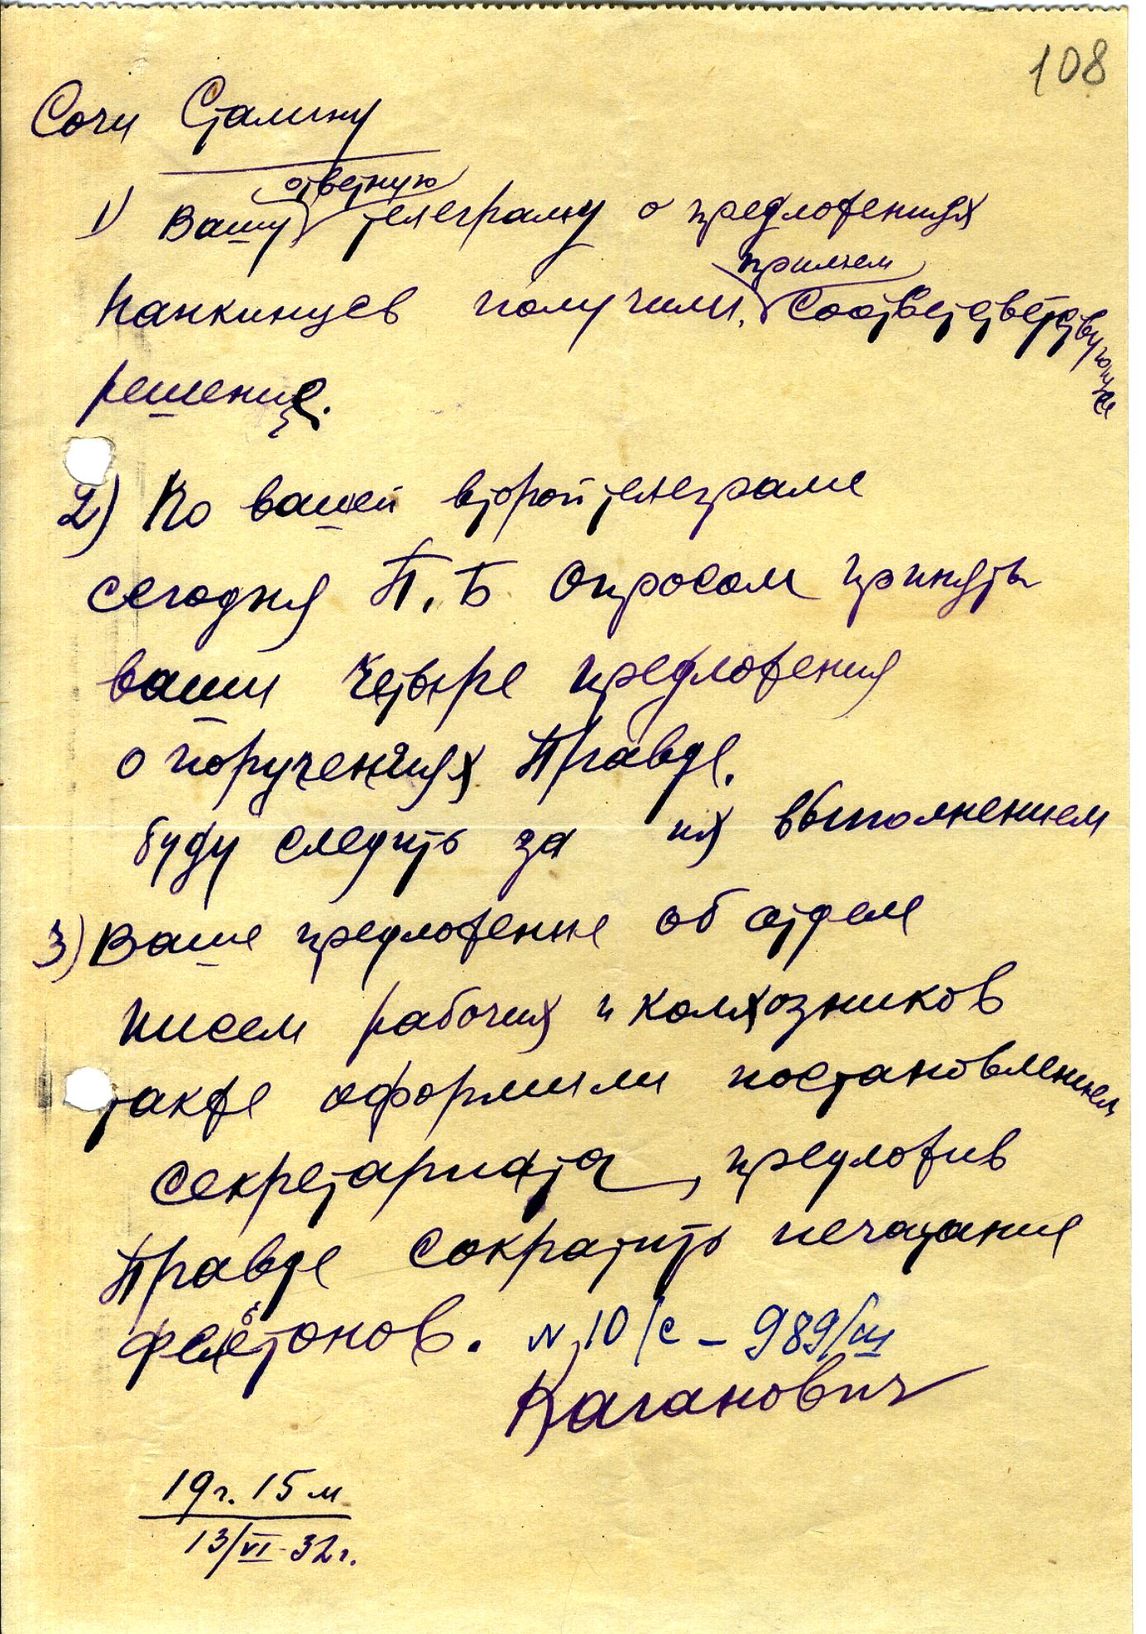 108
Сочи Сталину
ответную
1) Вашу телеграму о предложениях
примем
Нанкинцев получили, Соответствующее
решение.
2) По вашей второй телеграме
сегодня П.Б опросом приняты
ваши четыре предложения
о поручениях Правде.
буду следить за их выполнением
3) Ваше предложение об отделе
писем рабочих и колхозников
также оформили постановлением
секретариата, предложив
Правде сократить печатание
фельетонов. N 10/с - 989/ш
Каганович
19 г. 15 м
13/VI-32 г.